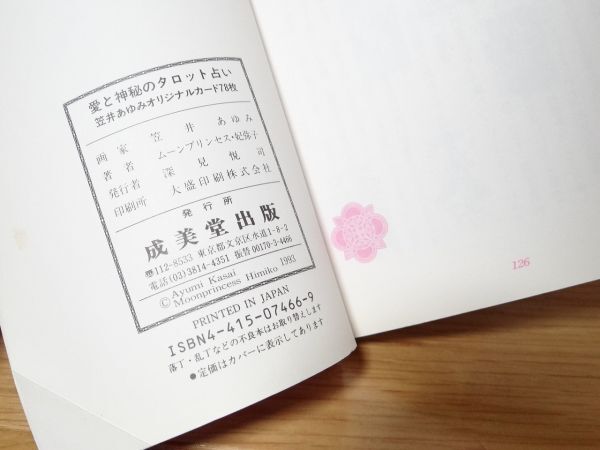 愛と神秘のタロット占い
笠井あゆみオリジナルカード78枚
画家 笠井 あゆみ
著者 ムーンプリンセス・妃弥子
発行者 深見 悦司
印刷所 大盛印刷株式会社
発行所
成美堂出版
〠112-8533 東京都文京区水道1-8-2
電話(03)3814-4351 振替00170-3-4466
© Ayumi Kasai
Moonprincess Himiko 1993
PRINTED IN JAPAN
ISBN4-415-07466-9
落丁・乱丁などの不良本はお取り替えします
●定価はカバーに表示してあります
126